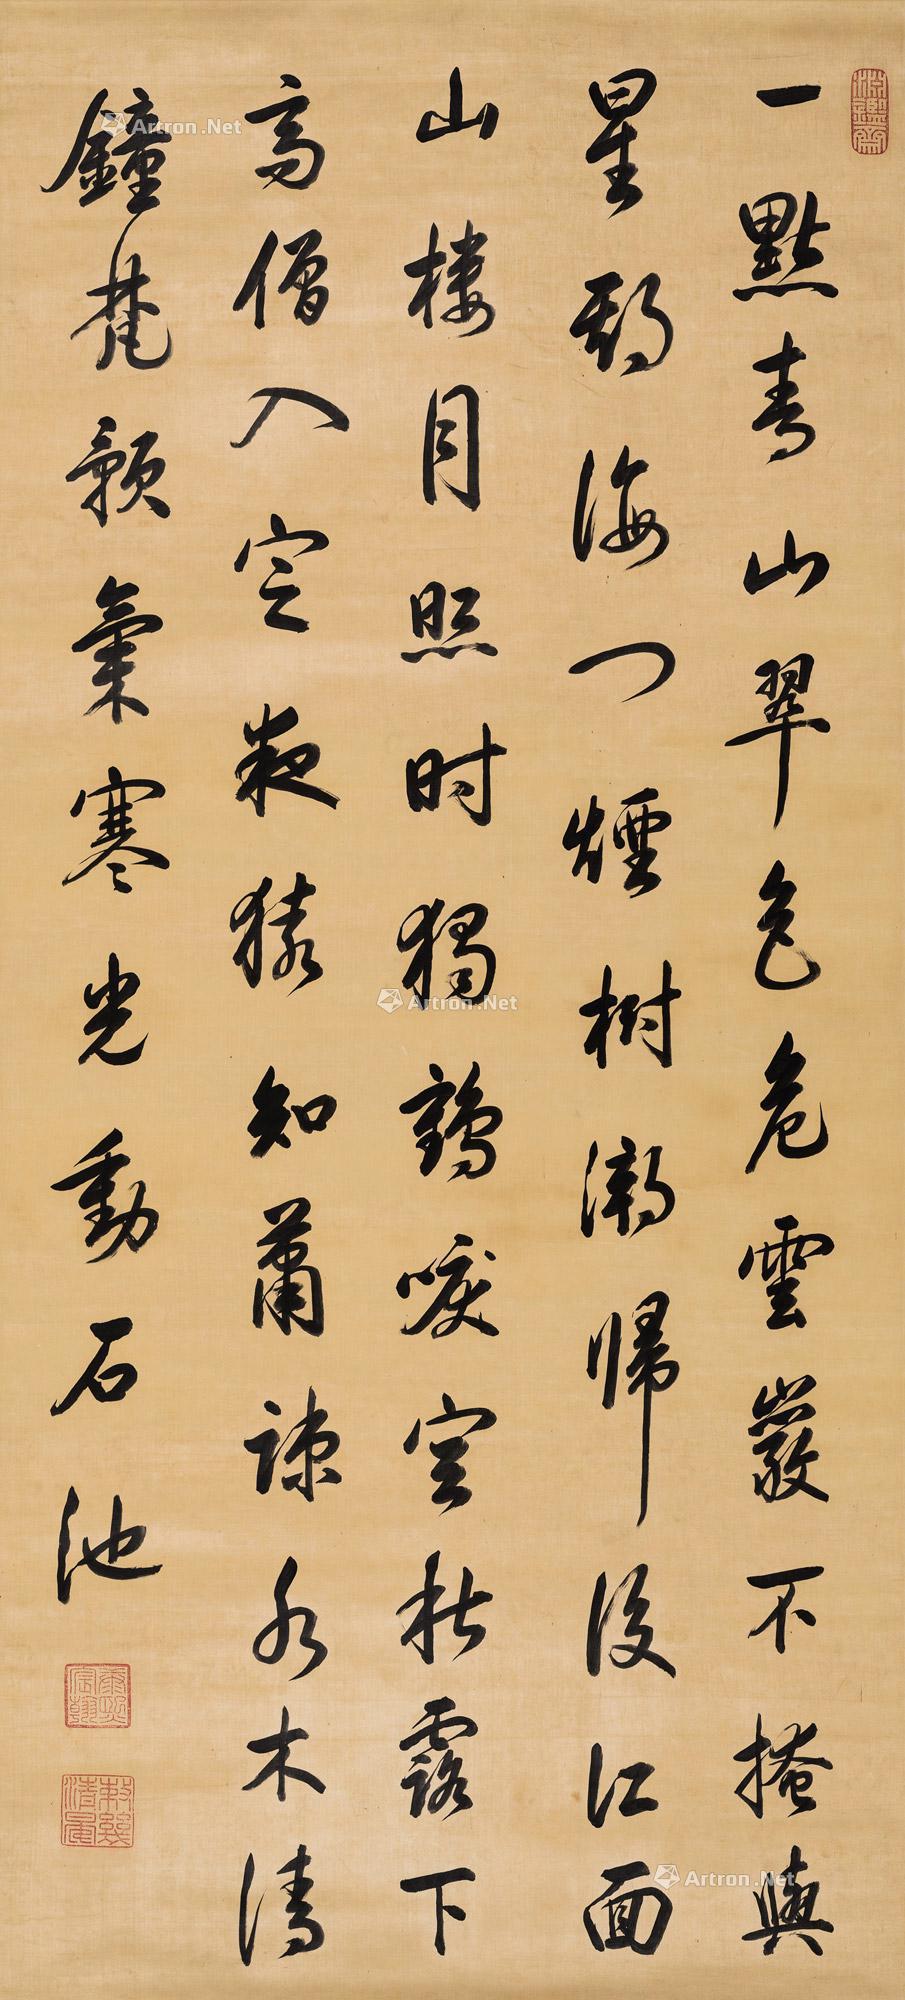 淵鑑齋
一點青山翠色危雲巖不掩與
星期海門煙樹潮歸後江面
山樓月照時獨鶴唳空秋露下
高僧入定夜猿知蕭疎水木清
鐘梵顥氣寒光動石池
康熙宸翰
敕幾清晏
Artron.Net
Artron.Net
Artron.Net